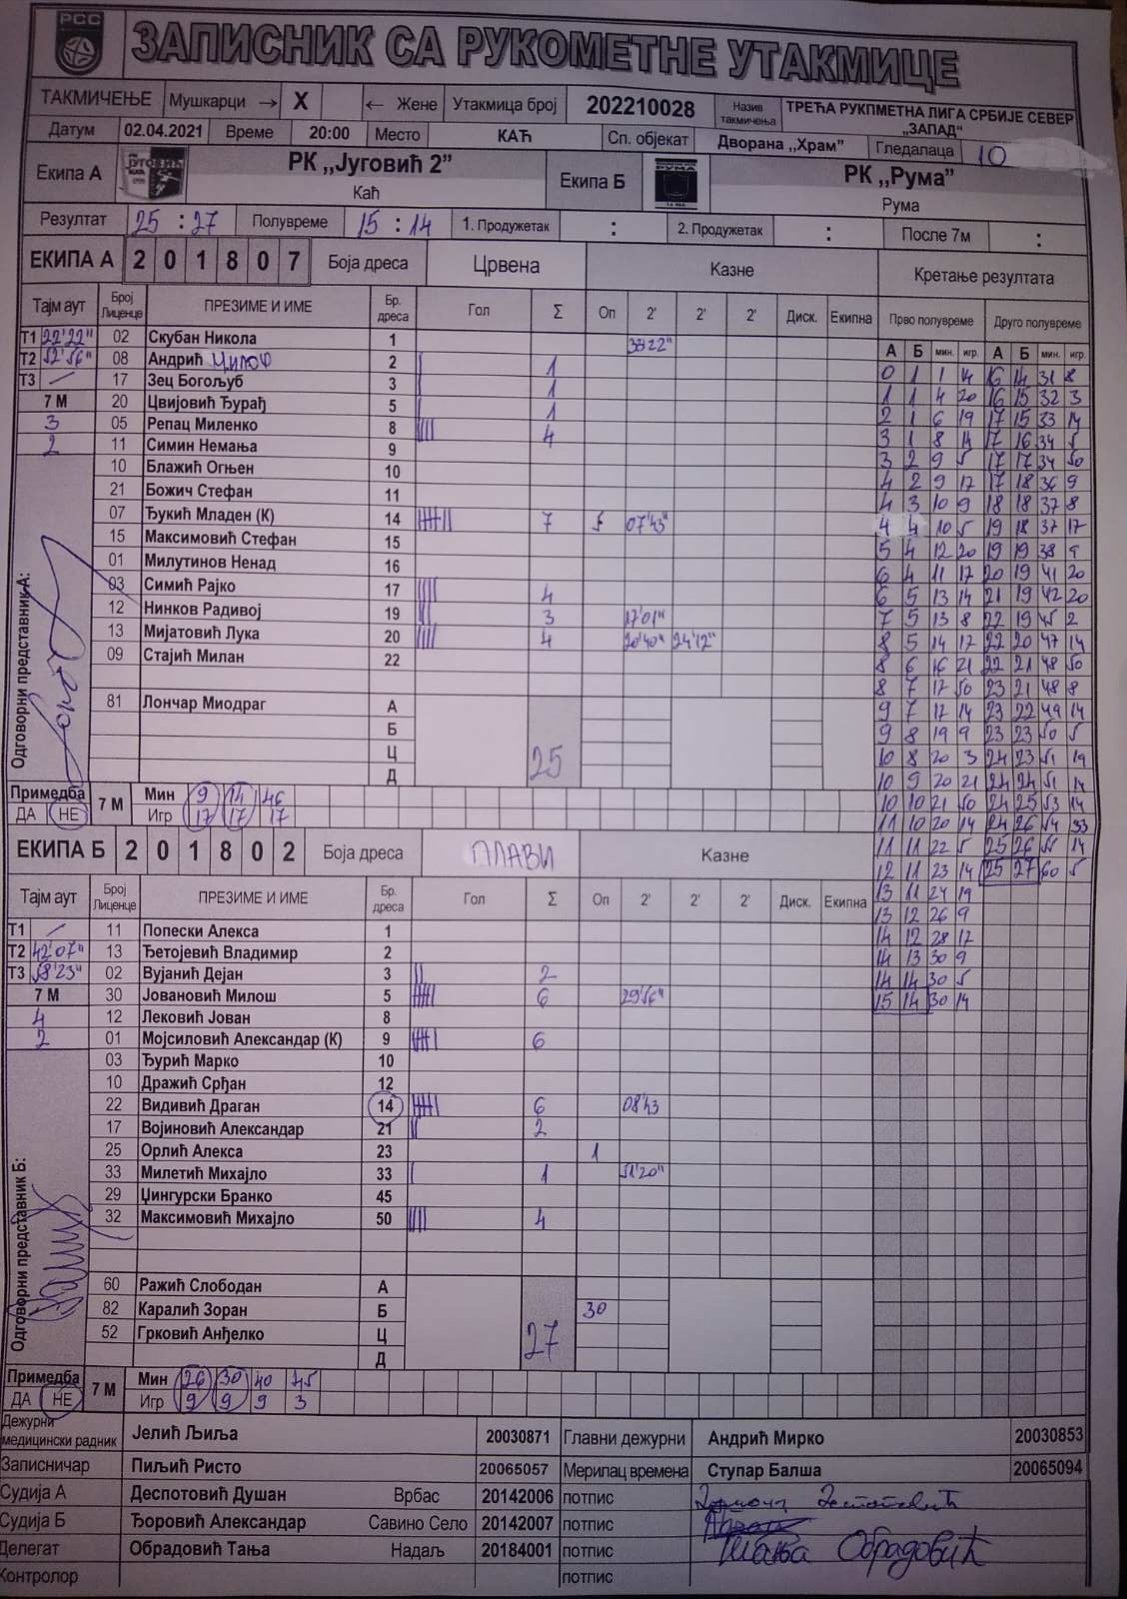 РСС
ЗАПИСНИК СА РУКОМЕТНЕ УТАКМИЦЕ
ТАКМИЧЕЊЕ Мушкарци → X ← Жене Утакмица број 202210028 Назив такмичења ТРЕЋА РУКПМЕТНА ЛИГА СРБИЈЕ СЕВЕР „ЗАПАД“
Датум 02.04.2021 Време 20:00 Место КАЋ Сп. објекат Дворана ,,Храм” Гледалаца 10
Екипа А РК ,,Југовић 2” Каћ Екипа Б РК ,,Рума” Рума
Резултат 25 : 27 Полувреме 15 : 14 1. Продужетак : 2. Продужетак : После 7м :
ЕКИПА А 2 0 1 8 0 7 Боја дреса Црвена Казне Кретање резултата
Тајм аут Број Лиценце ПРЕЗИМЕ И ИМЕ Бр. дреса Гол Σ Оп 2' 2' 2' Диск. Екипна Прво полувреме Друго полувреме
А Б мин. игр. А Б мин. игр.
Т1 22'22" 02 Скубан Никола 1 38'22"
Т2 52'56" 08 Андрић 2 1
Т3 — 17 Зец Богољуб 3 1
7 М 20 Цвијовић Ђурађ 5 1
3 05 Репац Миленко 8 4
2 11 Симин Немања 9
10 Блажић Огњен 10
21 Божич Стефан 11
07 Ђукић Младен (К) 14 7 07'43"
15 Максимовић Стефан 15
01 Милутинов Ненад 16
03 Симић Рајко 17 4
12 Нинков Радивој 19 3 17'01"
13 Мијатовић Лука 20 4 20'40" 24'12"
09 Стајић Милан 22
81 Лончар Миодраг А
Б
Ц 25
Д
Одговорни представник А:
Примедба ДА НЕ 7 М Мин 9 14 46
Игр 17 17 17
0 1 1 14 16 14 31 8
1 1 4 20 16 15 32 3
2 1 6 19 17 15 33 14
3 1 8 14 17 16 34 5
3 2 9 5 17 17 34 50
4 2 9 17 17 18 36 9
4 3 10 9 18 18 37 8
4 4 10 5 19 18 37 17
5 4 12 20 19 19 38 9
6 4 11 17 20 19 41 20
6 5 13 14 21 19 42 20
7 5 13 8 22 19 45 2
8 5 14 17 22 20 47 14
8 6 16 21 22 21 48 50
8 7 17 50 23 21 48 8
9 7 17 14 23 22 49 14
9 8 19 9 23 23 50 5
10 8 20 3 24 23 51 19
10 9 20 21 24 24 51 14
10 10 21 50 24 25 53 14
11 10 20 14 24 26 54 33
11 11 22 5 25 26 55 14
12 11 23 14 25 27 60 5
13 11 24 19
13 12 26 9
14 12 28 17
14 13 30 9
14 14 30 5
15 14 30 14
ЕКИПА Б 2 0 1 8 0 2 Боја дреса ПЛАВИ Казне
Тајм аут Број Лиценце ПРЕЗИМЕ И ИМЕ Бр. дреса Гол Σ Оп 2' 2' 2' Диск. Екипна
Т1 — 11 Попески Алекса 1
Т2 42'07" 13 Ђетојевић Владимир 2
Т3 58'23" 02 Вујанић Дејан 3 2
7 М 30 Јовановић Милош 5 6 29'56"
4 12 Лековић Јован 8
2 01 Мојсиловић Александар (К) 9 6
03 Ђурић Марко 10
10 Дражић Срђан 12
22 Видивић Драган 14 6 08'43
17 Војиновић Александар 21 2
25 Орлић Алекса 23 1
33 Милетић Михајло 33 1 51'20"
29 Џингурски Бранко 45
32 Максимовић Михајло 50 4
60 Ражић Слободан А
82 Каралић Зоран Б 30
52 Грковић Анђелко Ц 27
Д
Одговорни представник Б:
Примедба ДА НЕ 7 М Мин 26 30 40 45
Игр 9 9 9 3
Дежурни медицински радник Јелић Љиља 20030871 Главни дежурни Андрић Мирко 20030853
Записничар Пиљић Ристо 20065057 Мерилац времена Ступар Балша 20065094
Судија А Деспотовић Душан Врбас 20142006 потпис
Судија Б Ђоровић Александар Савино Село 20142007 потпис
Делегат Обрадовић Тања Надаљ 20184001 потпис Тања Обрадовић
Контролор потпис